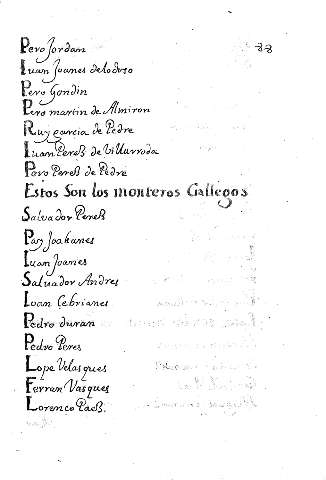 Pero Jordan
Iuan Joanes de lodoso
Pero Gondin
Pero martin de Almiron
Ruy garcia de Pedre
Iuan Pereß de Villarroda
Paro Pereß de Pedre
Estos Son los monteros Gallegos
Salvador Pereß
Pay Joahanes
Iuan Joanes
Salvador Andres
Ioan Cebrianes
Pedro duran
Pedro Peres
Lope Velasques
Ferran Vasques
Lorenco Paeß.